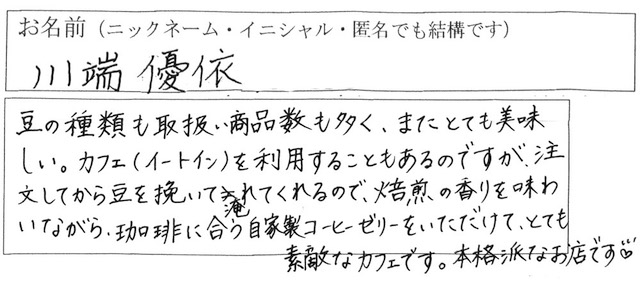 お名前（ニックネーム・イニシャル・匿名でも結構です）
川端 優依
豆の種類も取扱い商品数も多く、またとても美味
しい。カフェ(イートイン)を利用することもあるのですが、注
文してから豆を挽いて淹れてくれるので、焙煎の香りを味わ
いながら、珈琲に合う自家製コーヒーゼリーをいただけて、とても
素敵なカフェです。本格派なお店です